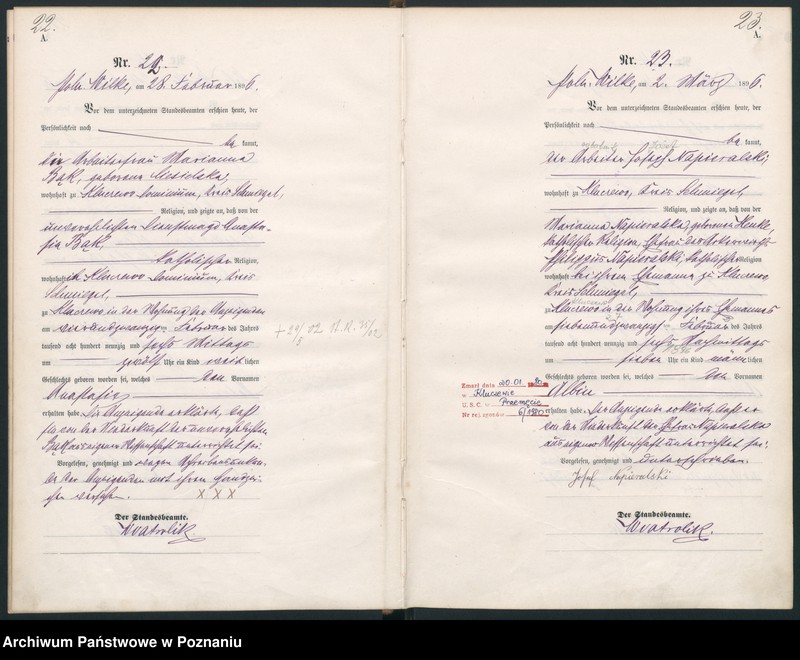 22.
A.
Nr. 22.
Poln. Wilke, am 28. Februar 1896.
Vor dem unterzeichneten Standesbeamten erschien heute, der
Persönlichkeit nach
be kannt,
die Arbeiterfrau Marianna
Bąk, geborene
wohnhaft zu Kluczewo Dominium, Kreis Schmiegel,
Religion, und zeigte an, daß von der
unverehelichten Dienstmagd Anasta-
sia Bąk
katholischer Religion,
wohnhaft in Kluczewo Dominium, Kreis
Schmiegel,
zu Kluczewo in der Wohnung der Anzeigenden
am vierundzwanzigsten Februar des Jahres
tausend acht hundert neunzig und sechs Mittags
um zwölf Uhr ein Kind weib lichen
Geschlechts geboren worden sei, welches den Vornamen
Anastasia
erhalten habe. Die Anzeigende erklärte, daß
sie von der Niederkunft der unverehelichten
Bąk aus eigener Wissenschaft unterrichtet sei.
Vorgelesen, genehmigt und wegen Schreibensunkun-
de der Anzeigenden mit ihrem Handzei-
chen versehen. X X X
Der Standesbeamte.
Kwatrolik
23.
A.
Nr. 23.
Poln. Wilke, am 2. März 1896.
Vor dem unterzeichneten Standesbeamten erschien heute, der
Persönlichkeit nach
be kannt,
der Arbeiter Josef Napieralski,
wohnhaft zu Kluczewo, Kreis Schmiegel,
Religion, und zeigte an, daß von der
Marianna Napieralska, geborenen Henke,
katholischer Religion, Ehefrau des
Napieralski, katholischer Religion
wohnhaft bei ihrem Ehemanne zu Kluczewo
Kreis Schmiegel,
zu Kluczewo in der Wohnung ihres Ehemannes
am siebenundzwanzigsten Februar des Jahres
tausend acht hundert neunzig und sechs Nachmittags
um sieben Uhr ein Kind männ lichen
Geschlechts geboren worden sei, welches den Vornamen
Albin
erhalten habe. Der Anzeigende erklärte, daß er
von der Niederkunft der Ehefrau Napieralska
aus eigener Wissenschaft unterrichtet sei.
Vorgelesen, genehmigt und unterschrieben.
Josef Napieralski
Der Standesbeamte.
Kwatrolik.
Zmarł dnia 20.01.1980
w Kluczewie
U. S. C. Przemęcie
Nr rej. zgonów 6/1980
Archiwum Państwowe w Poznaniu